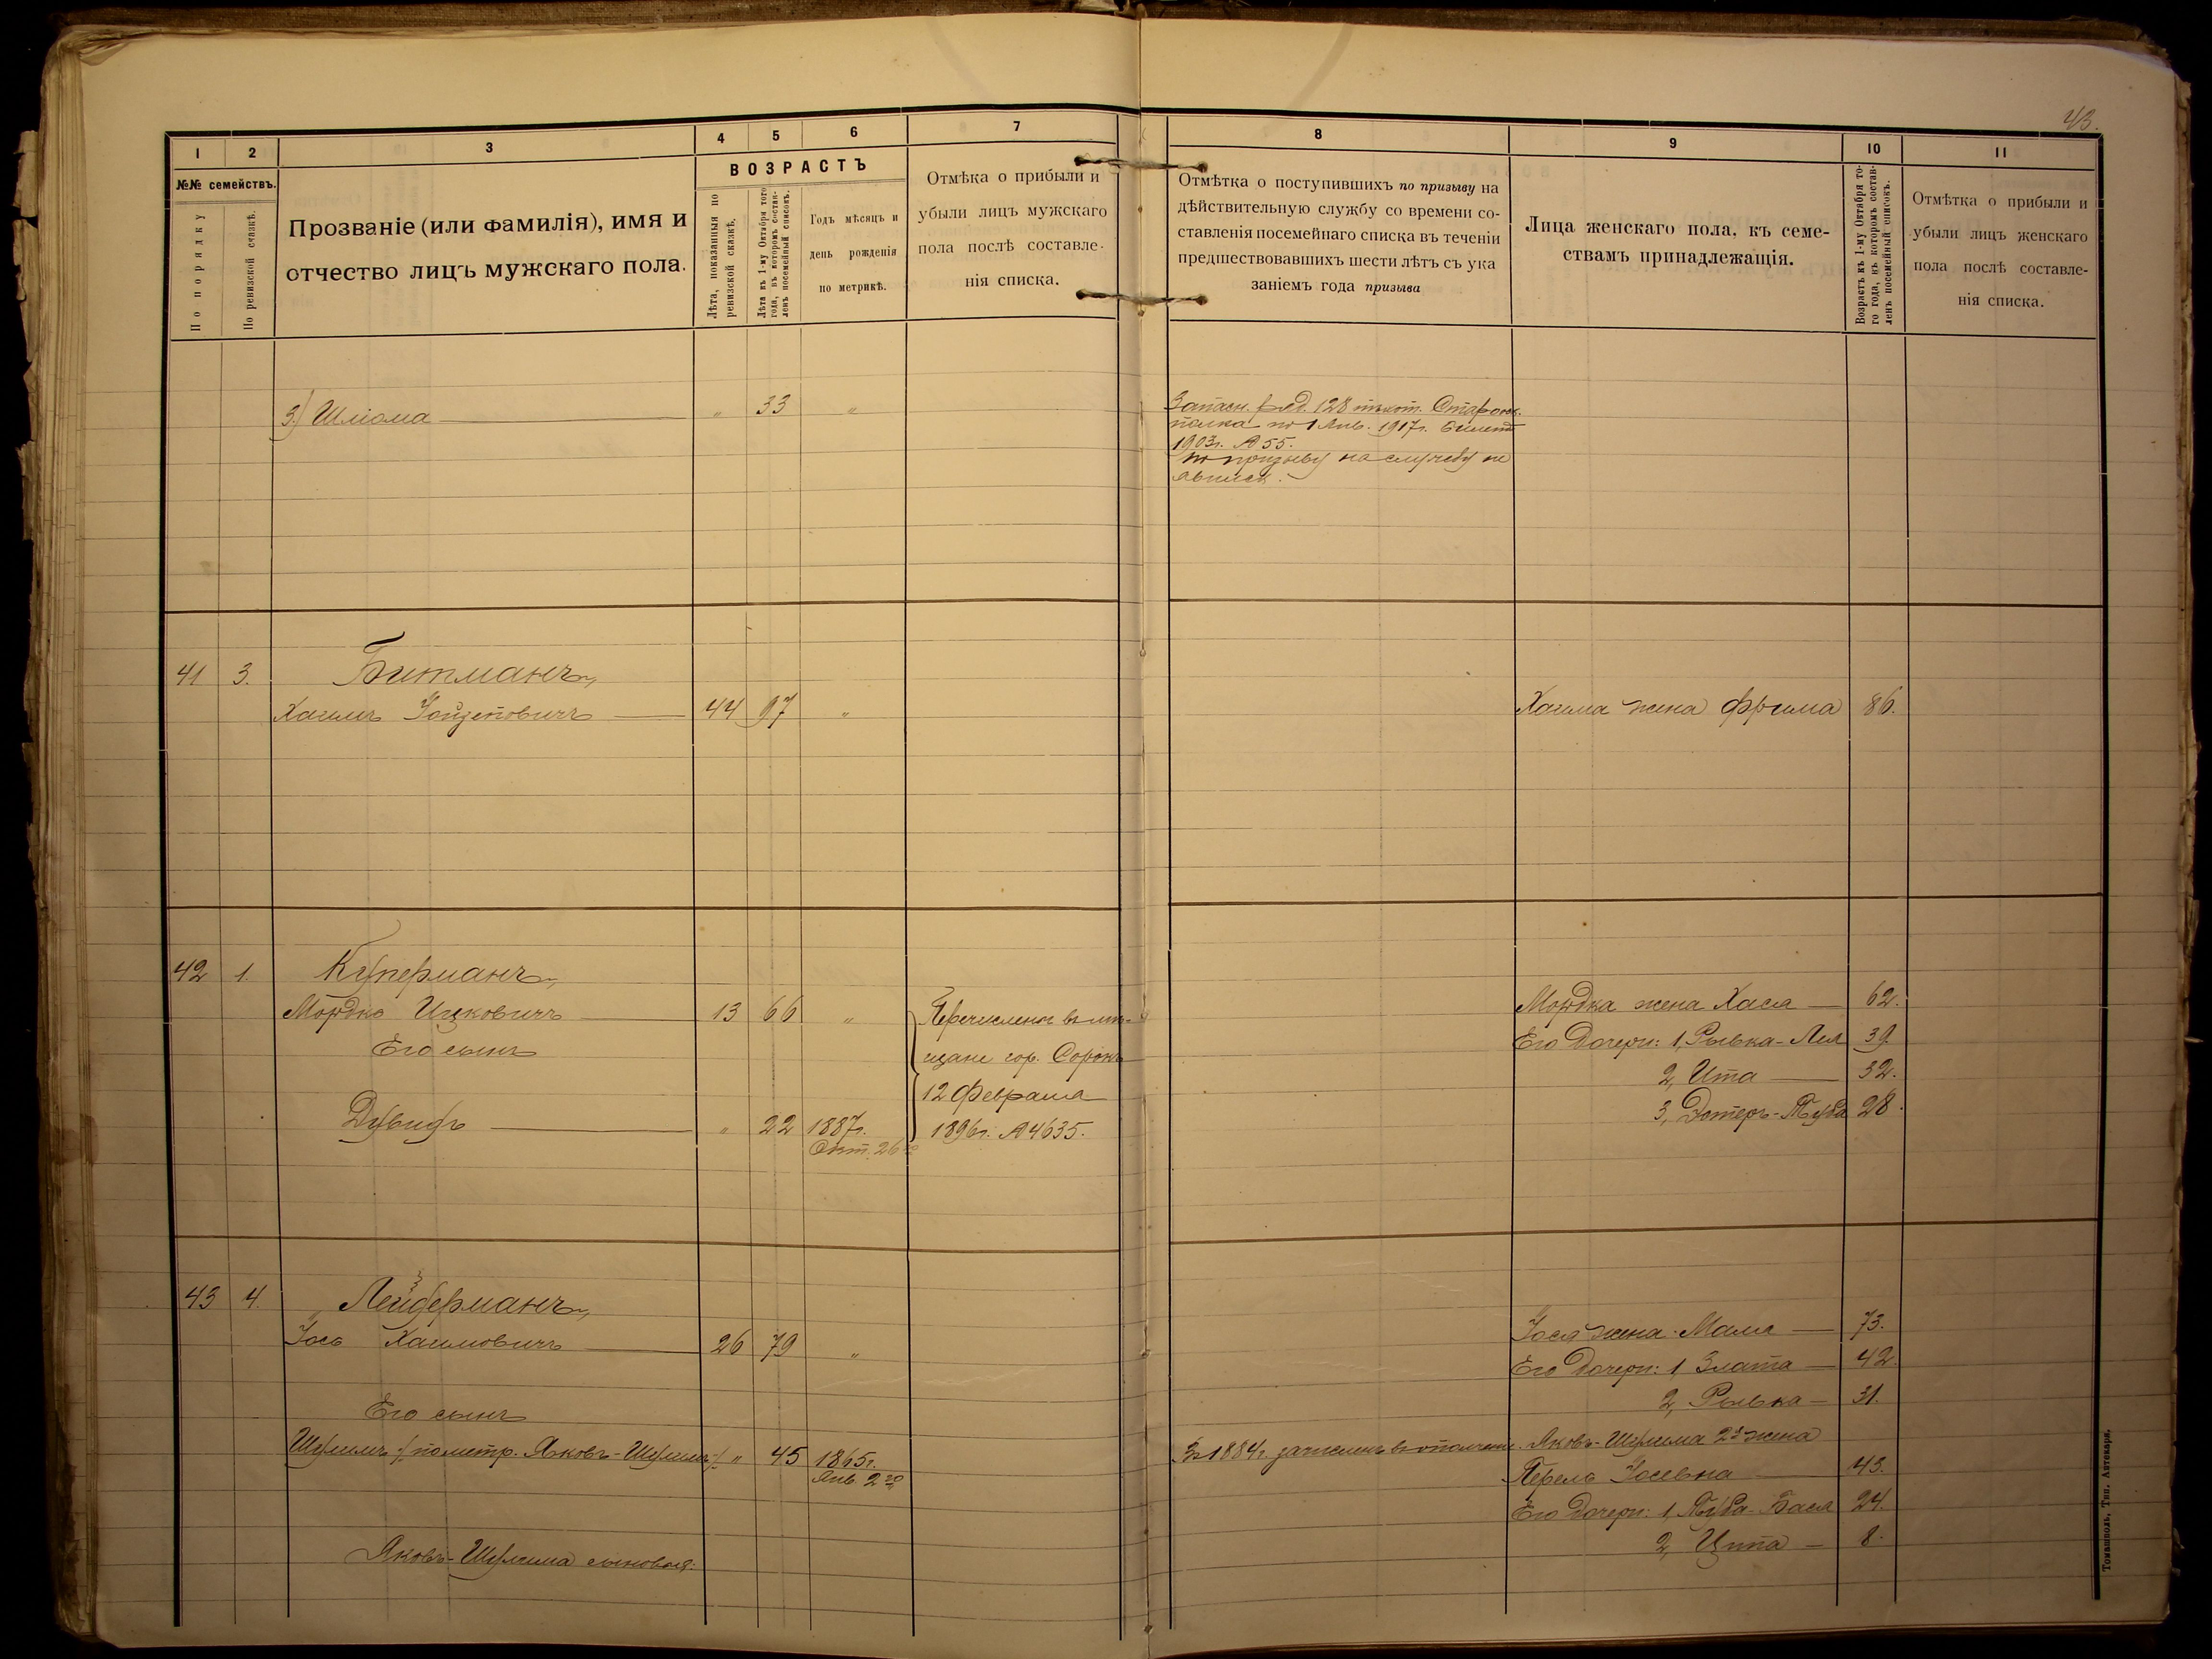 43.
1
2
3
4
5
6
7
8
9
10
11
№№ семействъ.
По порядку
По ревизской сказкѣ.
Прозваніе (или фамилія), имя и
отчество лицъ мужскаго пола.
ВОЗРАСТЪ
Лѣта, показанныя по
ревизской сказкѣ.
Лѣта къ 1-му Октября того
года, въ которомъ состав-
ленъ посемейный списокъ.
Годъ мѣсяцъ и
день рожденія
по метрикѣ.
Отмѣка о прибыли и
убыли лицъ мужскаго
пола послѣ составле-
нія списка.
Отмѣтка о поступившихъ по призыву на
дѣйствительную службу со времени со-
ставленія посемейнаго списка въ теченіи
предшествовавшихъ шести лѣтъ съ ука
заніемъ года призыва
Лица женскаго пола, къ семе-
ствамъ принадлежащія.
Возрастъ къ 1-му Октября то-
го года, въ которомъ состав-
ленъ посемейный списокъ.
Отмѣтка о прибыли и
убыли лицъ женскаго
пола послѣ составле-
нія списка.
3) Шлiома — " 33 "
Запасн. ряд. 128 пѣхот. Старос.
полка по 1 Янв. 1917г. билетъ
1903г. № 55.
по призыву на службу не
явился.
41 3. Битманъ
Хаимъ — 44 97 "
Хаима жена Фрима 86.
42 1. Куперманъ
Мордко Ицковичъ — 13 66 "
Его сынъ
Дувидъ — " 22 1887г.
Окт. 26
Перечислены въ мѣ-
щане гор. Сорокъ
12 Февраля
1896г. № 4635.
Мордка жена Хася — 62.
Его дочери: 1, Рывка-Лея 39.
2, Ита — 32.
3, Эстеръ-Туба 28.
43 4. Лейдерманъ
Іось Хаимовичъ — 26 79 "
Его сынъ
Шулимъ /: по метр. Яковъ-Шулимъ :/ " 45 1865г.
Янв. 2го
Яковъ-Шулима сыновья:
Въ 1884г. зачисленъ в ополчение.
Іося жена Маля — 73.
Его дочери: 1, Злата — 42.
2, Рывка — 31.
Яковъ-Шулима 2я жена
Перель Іосевна — 43.
Его дочери: 1, Туба-Бася 24.
2, Ципа — 8.
Томашполь, Тип. Аптекаря.